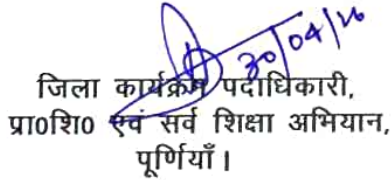 30/04/26
जिला कार्यक्रम पदाधिकारी,
प्रा०शि० एवं सर्व शिक्षा अभियान,
पूर्णियाँ।